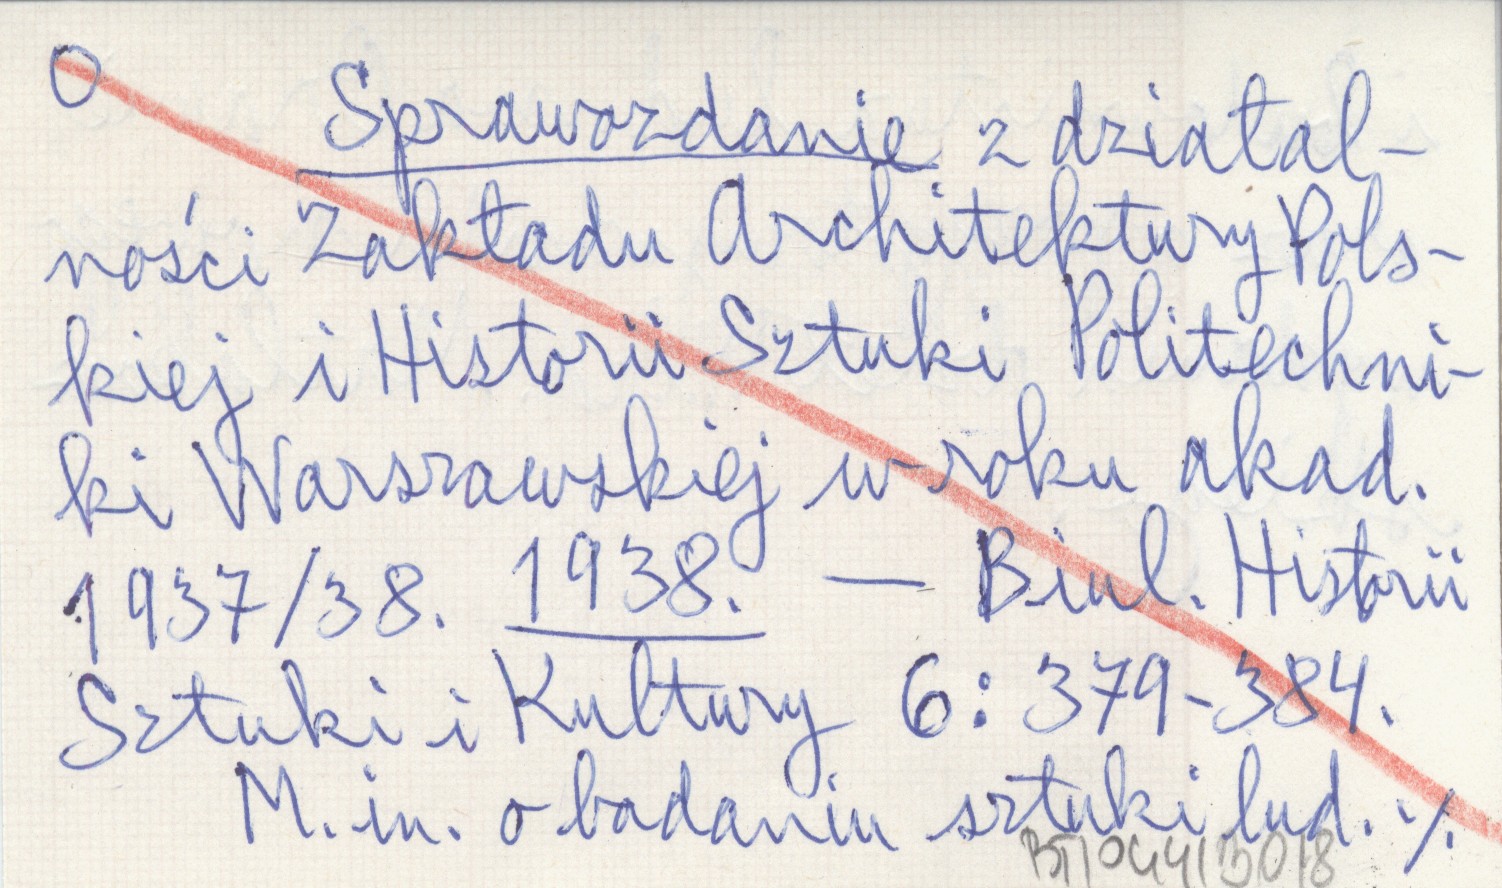 O
Sprawozdanie z działal-
ności Zakładu Architektury Pols-
kiej i Historii Sztuki Politechni-
ki Warszawskiej w roku akad.
1937/38. 1938. — Biul. Historii
Sztuki i Kultury 6: 379-384.
M. in. o badaniu sztuki lud. ./.